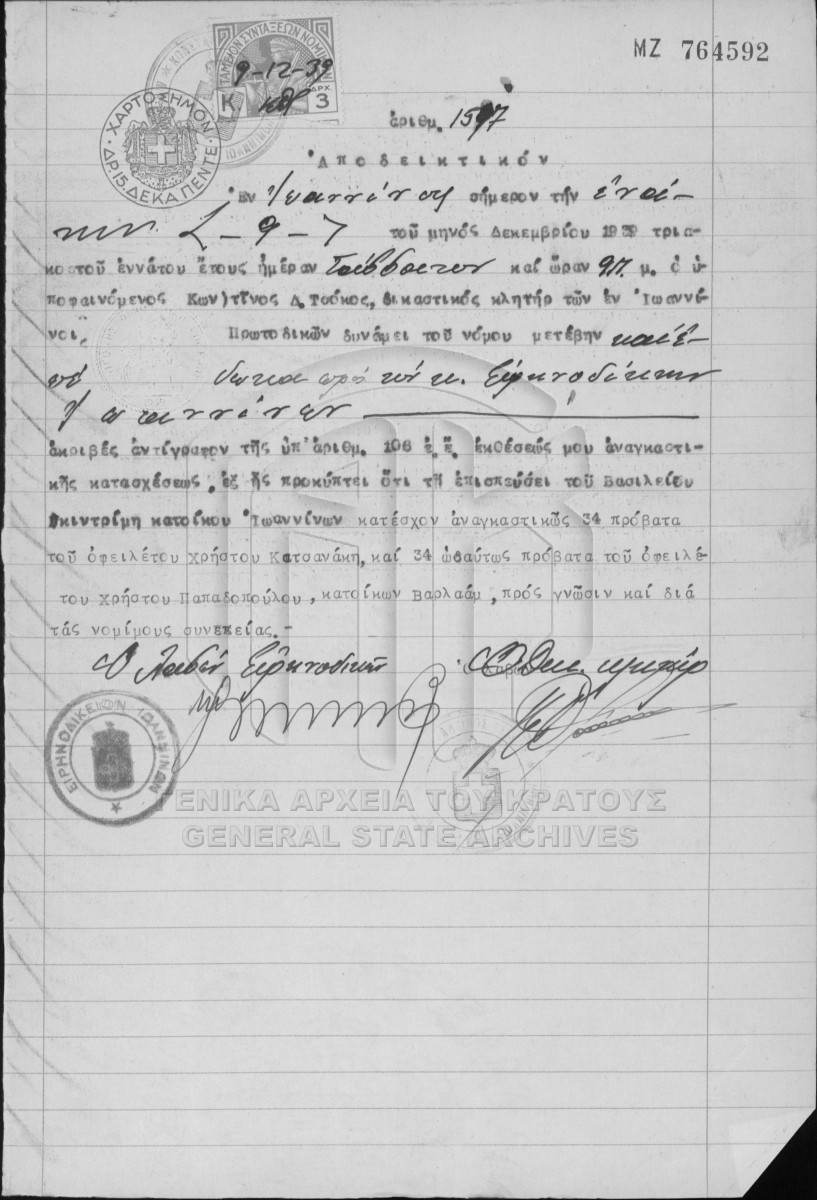 ΜΖ 764592
ΤΑΜΕΙΟΝ ΣΥΝΤΑΞΕΩΝ ΝΟΜΙΚΩΝ
9-12-39
Κ ΔΡΧ. 3
ΧΑΡΤΟΣΗΜΟΝ
ΔΡ.15. ΔΕΚΑ ΠΕΝΤΕ
ἀριθμ. 1597
Ἀποδεικτικόν
Ἐν Ἰωαννίνοις σήμερον τήν ἐνά-
την (-9-) τοῦ μηνός Δεκεμβρίου 1939 τρια-
κοστοῦ ἐννάτου ἔτους ἡμέραν Σάββατον καί ὥραν 9π. μ. ὁ ὑ-
ποφαινόμενος Κων)τῖνος Δ. Τσόκος, δικαστικός κλητήρ τῶν ἐν Ἰωαννί-
νοι, Πρωτοδικῶν δυνάμει τοῦ νόμου μετέβην καί ἐ-
πέ δωκα πρός τόν κ. Εἰρηνοδίκην
Ἰωαννίνων
ἀκριβές ἀντίγραφον τῆς ὑπ' ἀριθμ. 106 ἐ. ἔ. ἐκθέσεώς μου ἀναγκαστι-
κῆς κατασχέσεως, ἐξ ἧς προκύπτει ὅτι τῇ ἐπισπεύσει τοῦ Βασιλείου
Σκιντρίμη κατοίκου Ἰωαννίνων κατέσχον ἀναγκαστικῶς 34 πρόβατα
τοῦ ὀφειλέτου Χρήστου Κατσανάκη, καί 34 ὡσαύτως πρόβατα τοῦ ὀφειλέ-
του Χρήστου Παπαδοπούλου, κατοίκων Βαρλαάμ, πρός γνῶσιν καί διά
τάς νομίμους συνεπείας.-
Ὁ Λαβών Εἰρηνοδίκης Ὁ Δικ. κλητήρ
ΕΙΡΗΝΟΔΙΚΕΙΟΝ ΙΩΑΝΝΙΝΩΝ
ΓΕΝΙΚΑ ΑΡΧΕΙΑ ΤΟΥ ΚΡΑΤΟΥΣ
GENERAL STATE ARCHIVES